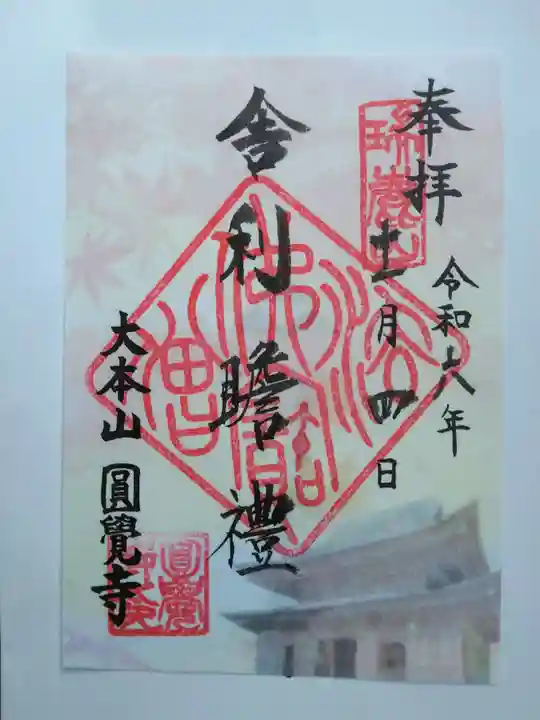 奉拝
令和六年
十一月四日
瑞鹿山
舎利瞻禮
大本山圓覺寺